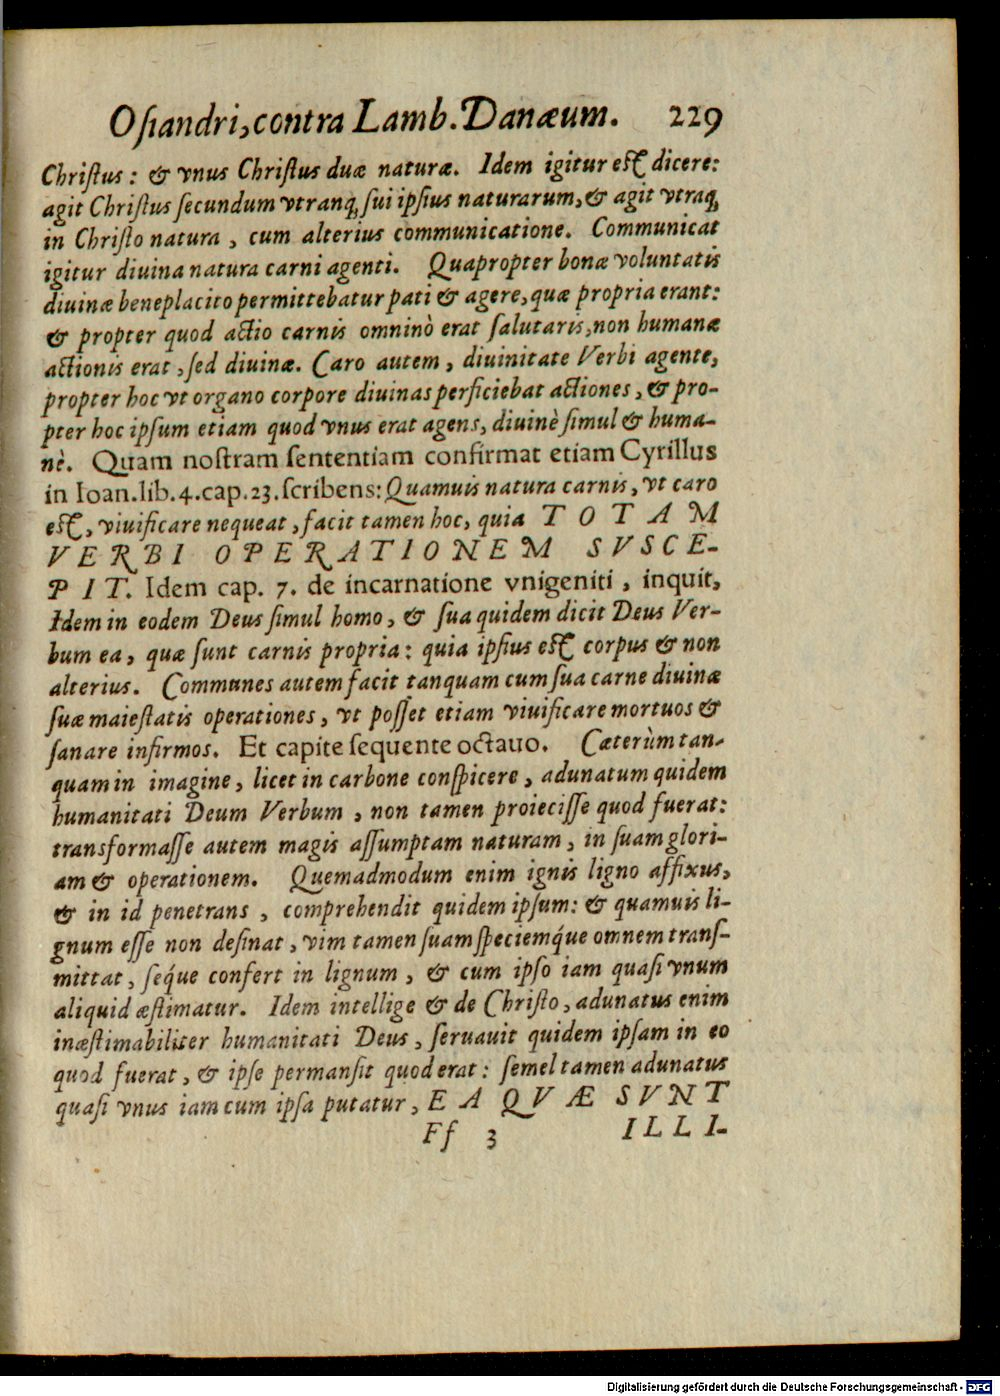 Oſiandri, contra Lamb. Danæum. 229
Chriſtus: & vnus Chriſtus duæ naturæ. Idem igitur eſt dicere:
agit Chriſtus ſecundum vtranq; ſui ipſius naturarum, & agit vtraq;
in Chriſto natura, cum alterius communicatione. Communicat
igitur diuina natura carni agenti. Quapropter bonæ voluntatis
diuinæ beneplacito permittebatur pati & agere, quæ propria erant:
& propter quod actio carnis omninò erat ſalutaris, non humanæ
actionis erat, ſed diuinæ. Caro autem, diuinitate Verbi agente,
propter hoc vt organo corpore diuinas perficiebat actiones, & pro-
pter hoc ipſum etiam quod vnus erat agens, diuinè ſimul & huma-
nè. Quam noſtram ſententiam confirmat etiam Cyrillus
in Ioan. lib. 4. cap. 23. ſcribens: Quamuis natura carnis, vt caro
eſt, viuificare nequeat, facit tamen hoc, quia T O T A M
V E R B I O P E R A T I O N E M S V S C E-
P I T. Idem cap. 7. de incarnatione vnigeniti, inquit,
Idem in eodem Deus ſimul homo, & ſua quidem dicit Deus Ver-
bum ea, quæ ſunt carnis propria: quia ipſius eſt corpus & non
alterius. Communes autem facit tanquam cum ſua carne diuinæ
ſuæ maieſtatis operationes, vt poſſet etiam viuificare mortuos &
ſanare infirmos. Et capite ſequente octauo. Cæterùm tan-
quam in imagine, licet in carbone conſpicere, adunatum quidem
humanitati Deum Verbum, non tamen proieciſſe quod fuerat:
transformaſſe autem magis aſſumptam naturam, in ſuam glori-
am & operationem. Quemadmodum enim ignis ligno affixus,
& in id penetrans, comprehendit quidem ipſum: & quamuis li-
gnum eſſe non deſinat, vim tamen ſuam ſpeciemq́ue omnem tranſ-
mittat, ſeq́ue confert in lignum, & cum ipſo iam quaſi vnum
aliquid æſtimatur. Idem intellige & de Chriſto, adunatus enim
inæſtimabiliter humanitati Deus, ſeruauit quidem ipſam in eo
quod fuerat, & ipſe permanſit quod erat: ſemel tamen adunatus
quaſi vnus iam cum ipſa putatur, E A Q V Æ S V N T
Ff 3 I L L I-
Digitalisierung gefördert durch die Deutsche Forschungsgemeinschaft - DFG